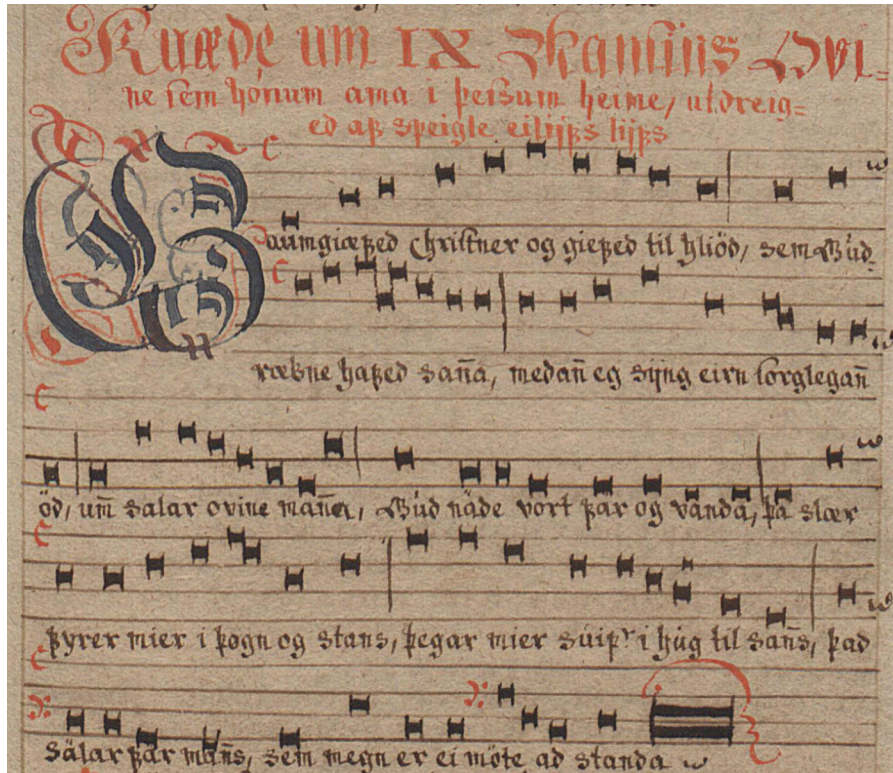 Kuæde um IX Skamſins Ovi=
ne ſem hónum ama i þeiſsum heime, utdreig=
ed aſs speigle eilijfſs lijfſs
Gaumgiæfed Christner og giefed til hliöd, sem Gud
ræsne hafed sañа, medañ eg sijng eirn sorglegañ
öd, um̄ salar ovine mañа, Gud näde vort fär og vanda, þa slær
fyrer mier i þogn og stans, þegar mier suifr i hug til sañs, þad
sälar fär mañs, sem megn er ei möte ad standa